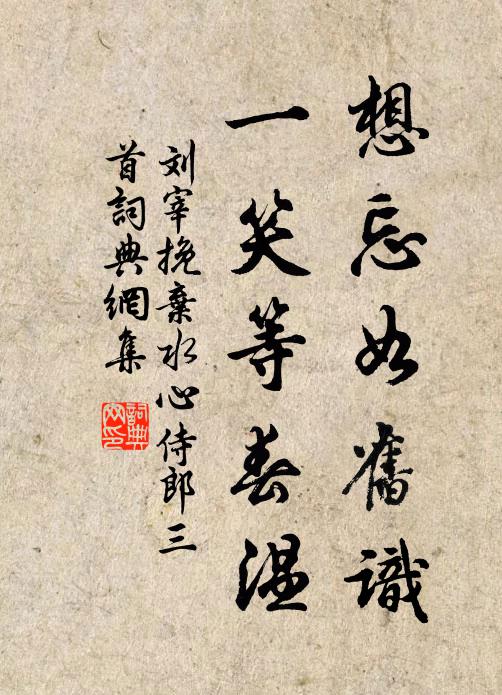 想忘如舊識
一笑等春温
刘宰挽棄水心侍郎三
首詞典網集
詞典網印